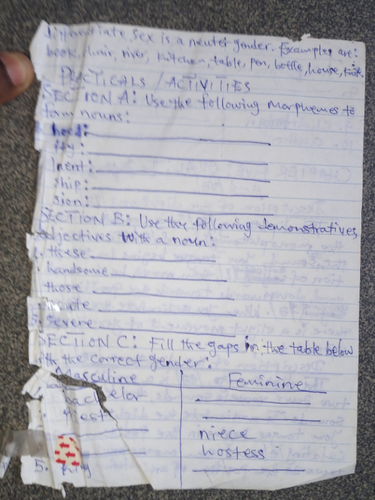 differentiate sex is a neuter gender. Examples are:
book, hair, river, kitchen, table, pen, bottle, house,
PRACTICALS / ACTIVITIES
SECTION A: Use the following morphemes to
form nouns:
hood:
ity:
ment:
ship:
sion:
SECTION B: Use the following demonstratives
adjectives with a noun:
these
handsome
those
5. Severe
SECTION C: Fill the gaps in the table below
with the correct gender:
Masculine Feminine
bachelor
niece
hostess
5. King